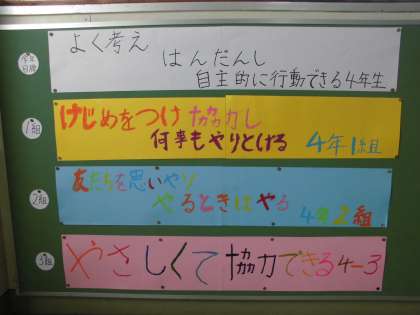 学年
目標
よく考え
はんだんし
自主的に行動できる4年生
1組
けじめをつけ 協力し
何事もやりとげる 4年1組
2組
友だちを思いやり
やるときはやる 4年2組
3組
やさしくて 協力できる4-3